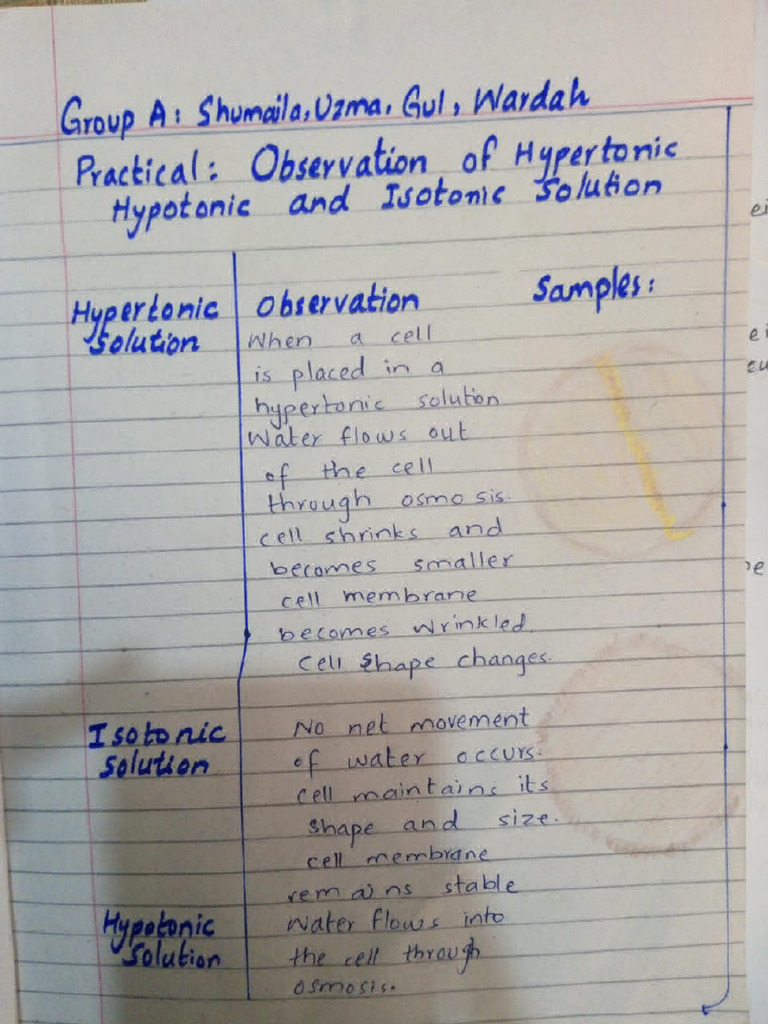 Group A: Shumaila, Uzma, Gul, Wardah
Practical: Observation of Hypertonic
Hypotonic and Isotonic Solution
Hypertonic Solution
Observation
Samples:
When a cell
is placed in a
hypertonic solution
Water flows out
of the cell
through osmosis.
cell shrinks and
becomes smaller
cell membrane
becomes wrinkled.
Cell shape changes.
Isotonic
Solution
No net movement
of water occurs.
cell maintains its
shape and size.
cell membrane
remains stable
Hypotonic
Solution
Water flows into
the cell through
osmosis.